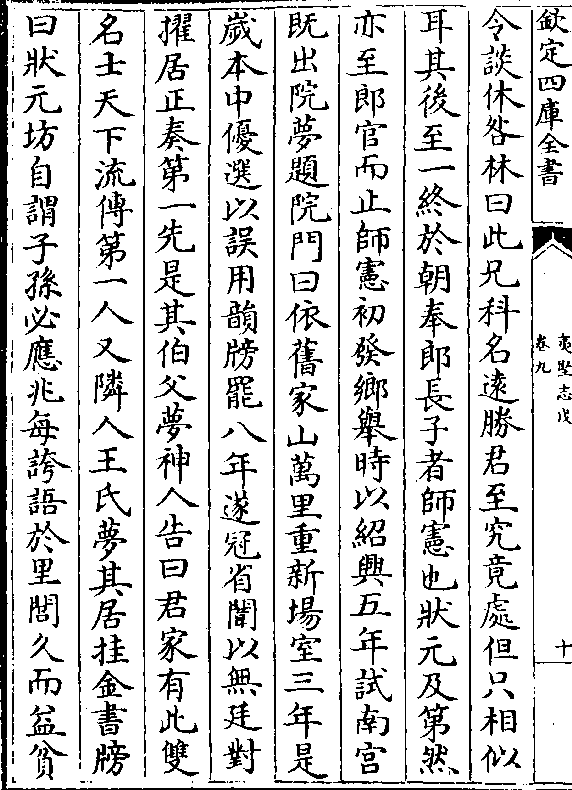 欽定四庫全書
夷堅志戊
卷九
十
令談休咎林曰此兄科名遠勝君至究竟處但只相似
耳其後至一終於朝奉郎長子者師憲也狀元及第然
亦至郎官而止師憲初發鄉舉時以紹興五年試南宮
既出院夢題院門曰依舊家山萬里重新場室三年是
嵗本中優選以誤用韻牓罷八年遂冠省闈以無廷對
擢居正奏第一先是其伯父夢神人告曰君家有此雙
名士天下流傳第一人又隣人王氏夢其居挂金書牓
曰狀元坊自謂子孫必應兆每誇語於里閭久而益貧